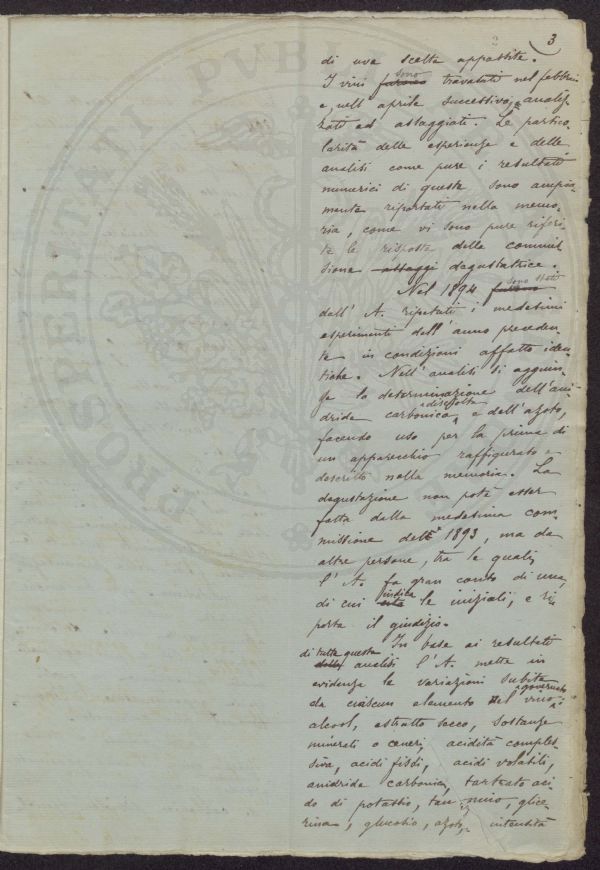 2 3
di uve scelte appassite.
I vini furono sono travasati nel febbraio
e, nell' aprile successivo, analiz-
zati ed assaggiati. Le partico-
larità delle esperienze e delle
analisi come pure i resultati
numerici di queste sono ampia-
mente riportati nella memo-
ria, come vi sono pure riferi-
te le risposte della commis-
sione assaggi degustatrice.
Nel 1894 furono sono stati
dall' A. ripetuti i medesimi
esperimenti dell' anno preceden-
te in condizioni affatto iden-
tiche. Nell' analisi si aggiun-
ge la determinazione dell' ani-
dride carbonica disciolta e dell' azoto,
facendo uso per la prima di
un apparecchio raffigurato e
descritto nella memoria. La
degustazione non potè esser
fatta dalla medesima com-
missione del 1893, ma da
altre persone, tra le quali,
l' A. fa gran conto di una,
di cui indica le iniziali, e ri-
porta il giudizio.
In base ai resultati
di tutte queste analisi l' A. mette in
evidenza le variazioni subite
da ciascun elemento del vino governato:
alcool, estratto secco, sostanze
minerali o ceneri, acidità comples-
siva, acidi fissi, acidi volatili,
anidride carbonica, tartrato aci-
do di potassio, tannino, glice-
rina, glucosio, azoto, intensità
PROSPERITATI PVBL